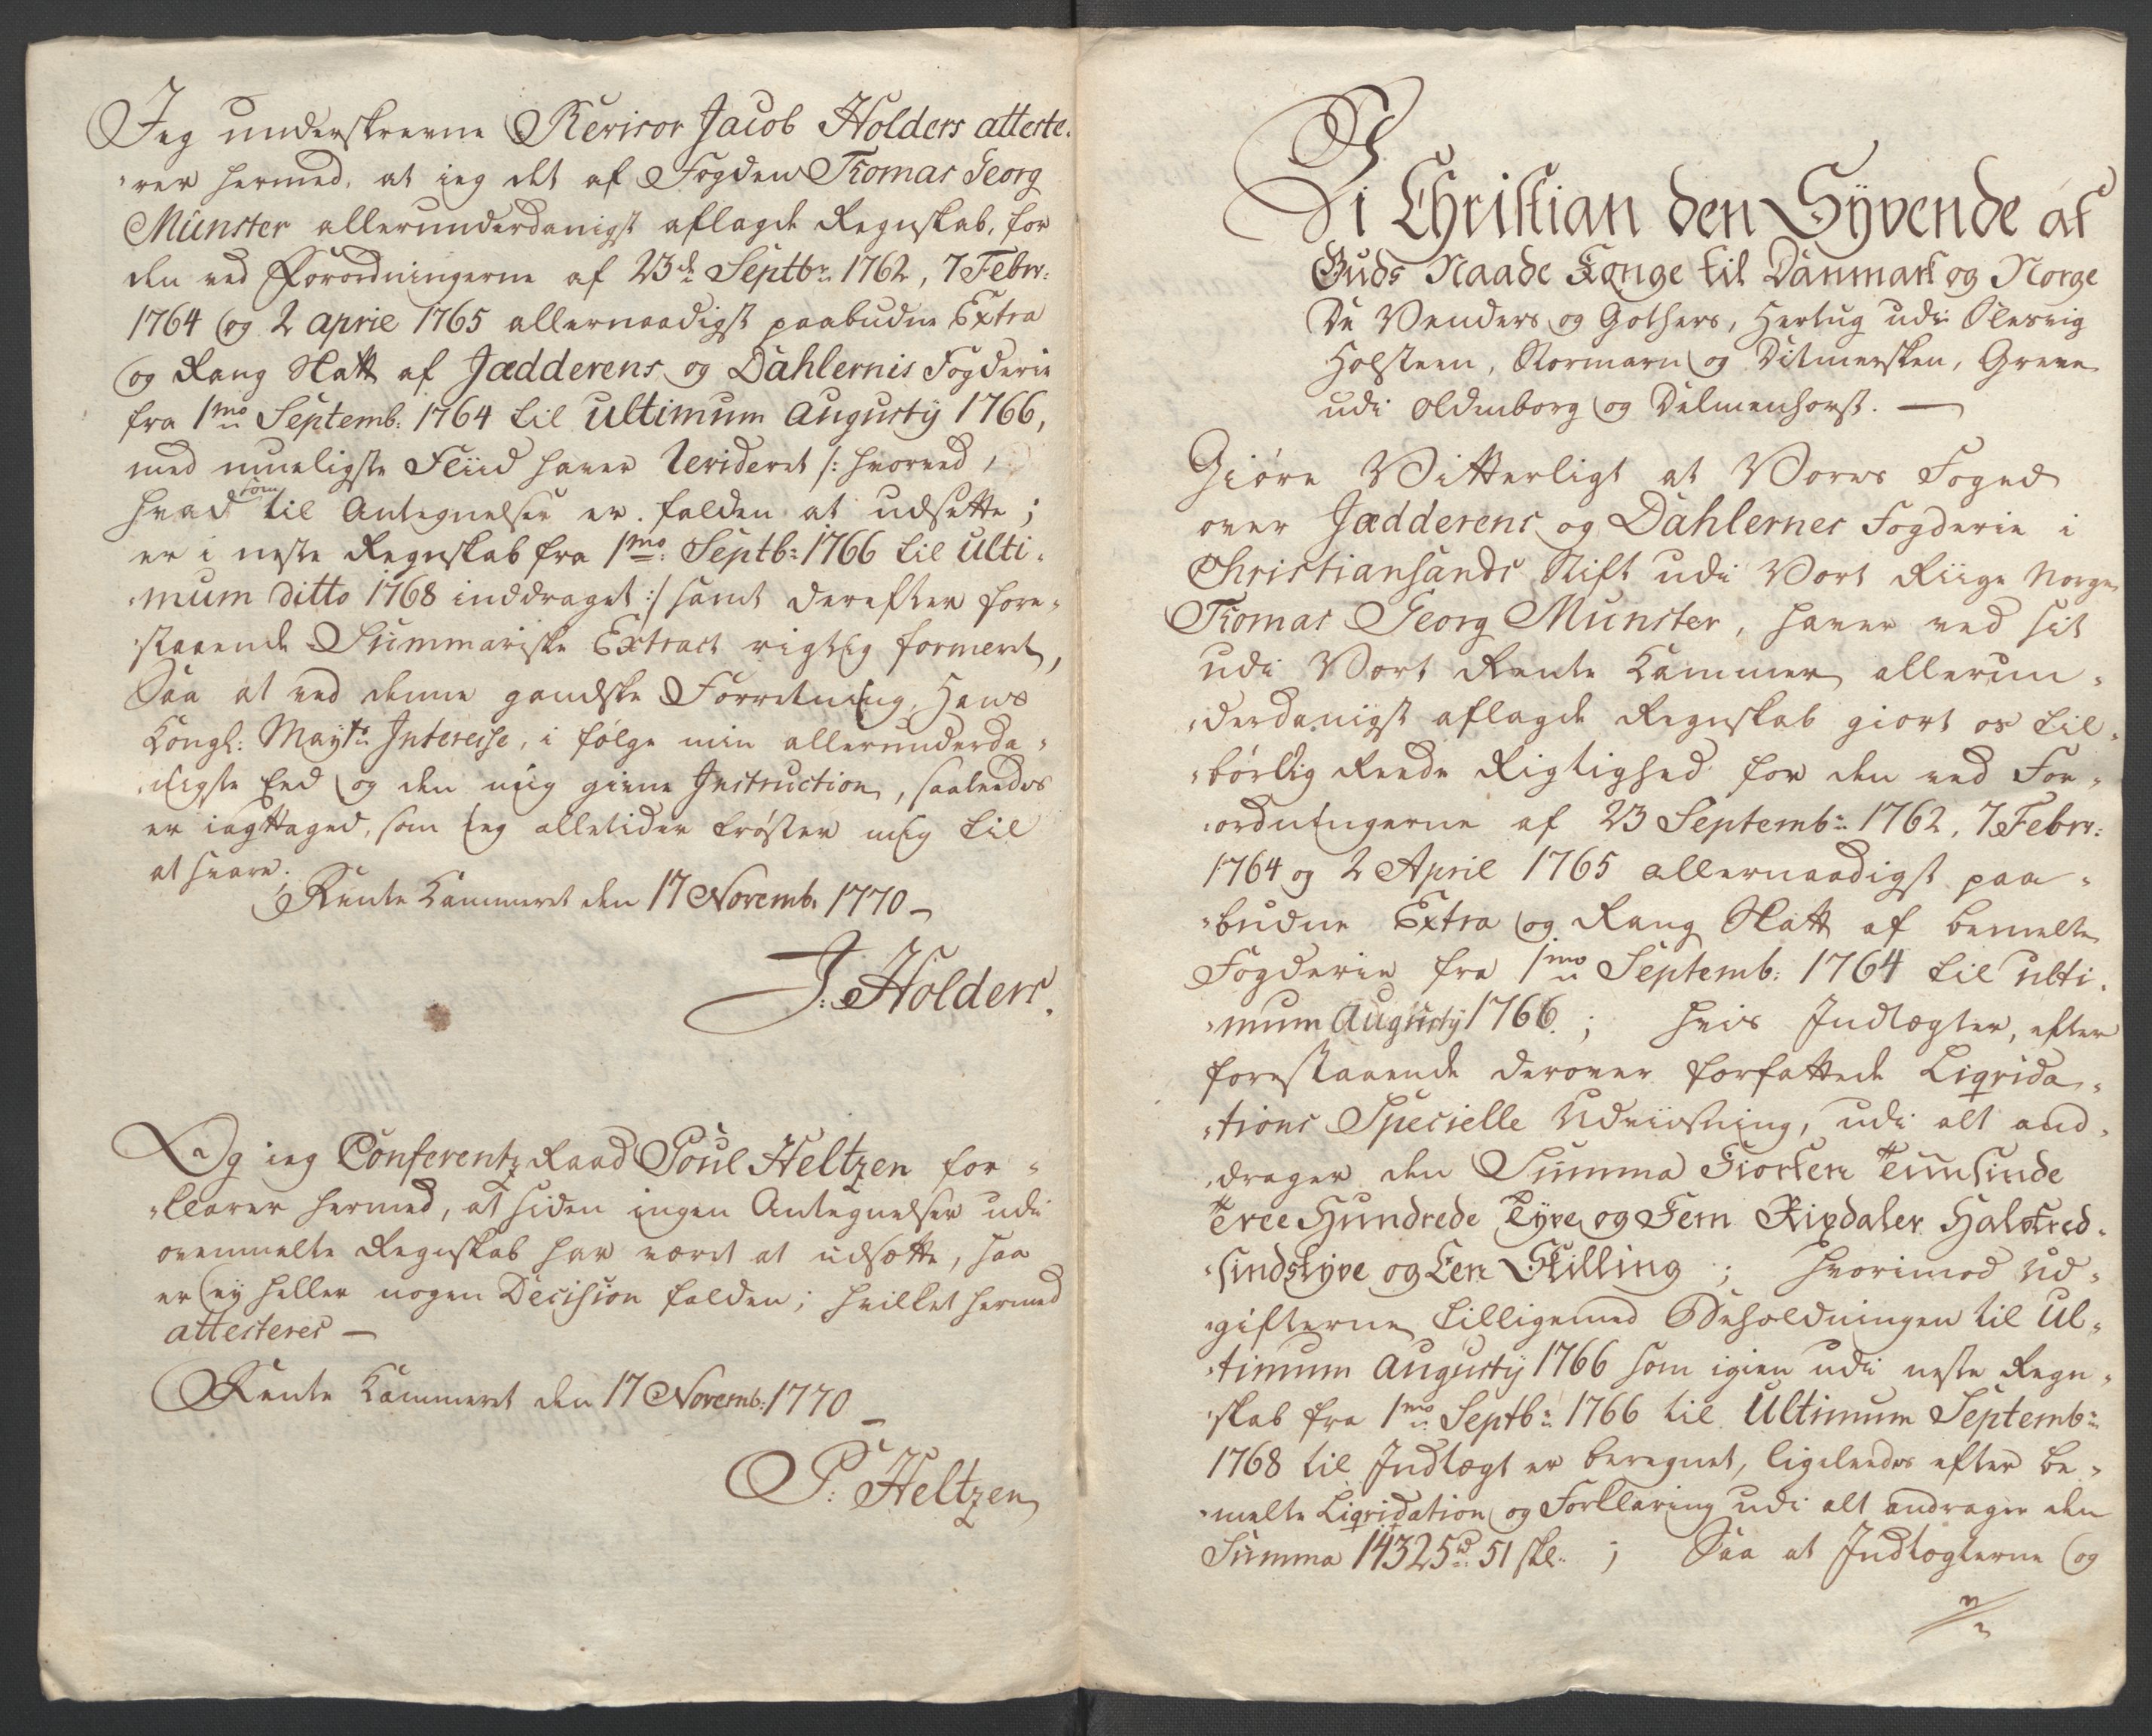 Jeg underskrevne Revisor Jacob Holders atteste-
-rer hermed, at ieg det af Fogden Tromas Georg
Münster allerunderdanigst aflagde Regnskab, for
den ved Forordningerne af 23de Septbr: 1762, 7 Febrr:
1764 og 2 april 1765 allernaadigst paabudne Extra
og Rang Skatt af Jædderens og Dahlernis Fogderie
fra 1mo Septemb: 1764 til ultimum Augustÿ 1766,
med mueligste Fliid haver Revideret /: hvorved,
hvad som til Antegnelser er falden at udsette;
er i neste Regnskab fra 1mo: Septb: 1766 til ulti-
-mum ditto 1768 inddraget :/ samt derefter fore-
-staaende Summariske Extract rigtig formeret,
Saa at ved denne gandske Forretning, Hans
Kongl: Mayts: Interesse, i følge min allerunderda-
-nigste Eed og den mig givne Instruction, saaleedes
er iagttaged, som ieg alletider trøster mig til
at svare.
Rente Kammeret den 17 Novemb: 1770 -
J: Holders.
Og ieg Conferentz Raad Poul Heltzen for-
-klarer hermed, at siden ingen Antegnelser udi
ovenmelte Regnskab har været at udsætte, saa
er ey heller nogen Decision falden; hvilket hermed
attesteres -
Rente Kammeret den 17 Novemb: 1770 -
P: Heltzen
Vi Christian den Syvende af
Guds Naade Konge til Danmark og Norge
De Venders og Gothers, Hertug udi Slesvig
Holsteen, Stormarn og Ditmersken, Greve
udi Oldenborg og Delmenhorst. -
Giøre Vitterligt at Vores Foged
over Jædderens og Dahlernes Fogderie i
Christiansands Stift udi Vort Riige Norge
Tromas Georg Munster, haver ved sit
udi Vort Rente Kammer allerun-
-derdanigst aflagde Regnskab giort os til-
-børlig Reede Rigtighed for den ved For-
-ordningerne af 23 Septembr: 1762, 7 Febrr:
1764 og 2 April 1765 allernaadigst paa-
-budne Extra og Rang Skatt af bemelte
Fogderie fra 1mo Septemb: 1764 til ulti-
-mum Augustÿ 1766.; hvis Indtægter, efter
forestaaende derover forfattede Liqvida-
-tions Specielle Udviisning, udi alt and-
-drager den Summa Fiorten Tuusinde
Tree Hundrede Tyve og Fem Rixdaler Halvtred-
-sindstyve og Een Skilling; hvorimod Ud-
-gifterne tilligemed Beholdningen til Ul-
-timum Augustÿ 1766 som igien udi neste Regn-
-skab fra 1mo: Septb: 1766 til Ultimum Septemb:
1768 til Indtægt er beregnet, ligeleedes efter be-
-melte Liqvidation og Forklaring udi alt andrager den
Summa 14325 rd: 51 skl: ; Saa at Indtægterne og